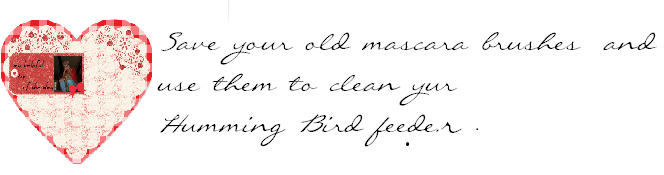 Save your old mascara brushes and
use them to clean yur
Humming Bird feede.r .